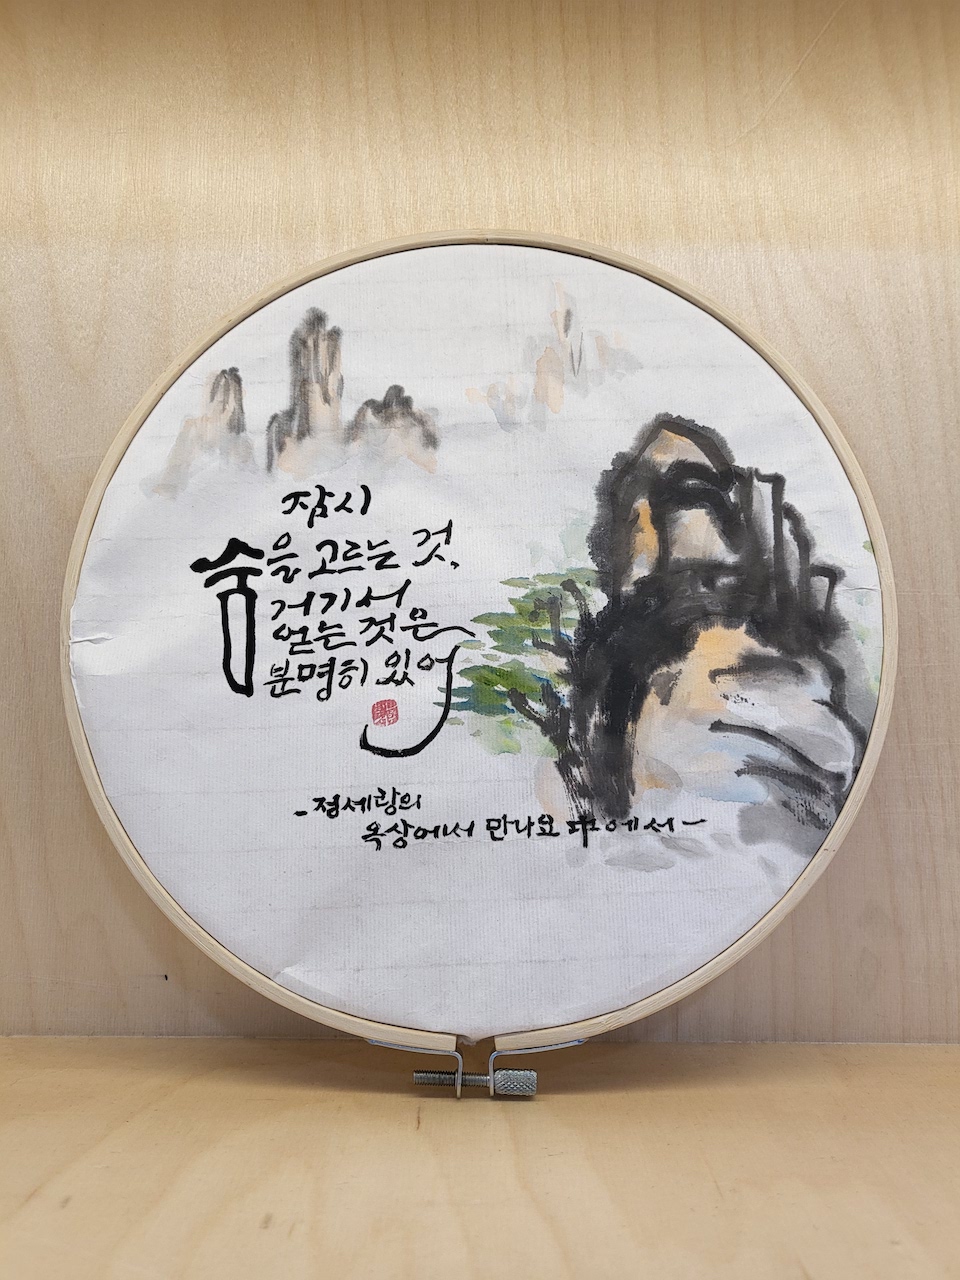 잠시
숨을 고르는 것,
거기서
얻는 것은
분명히 있어
- 정세랑의
옥상에서 만나요 中에서 -